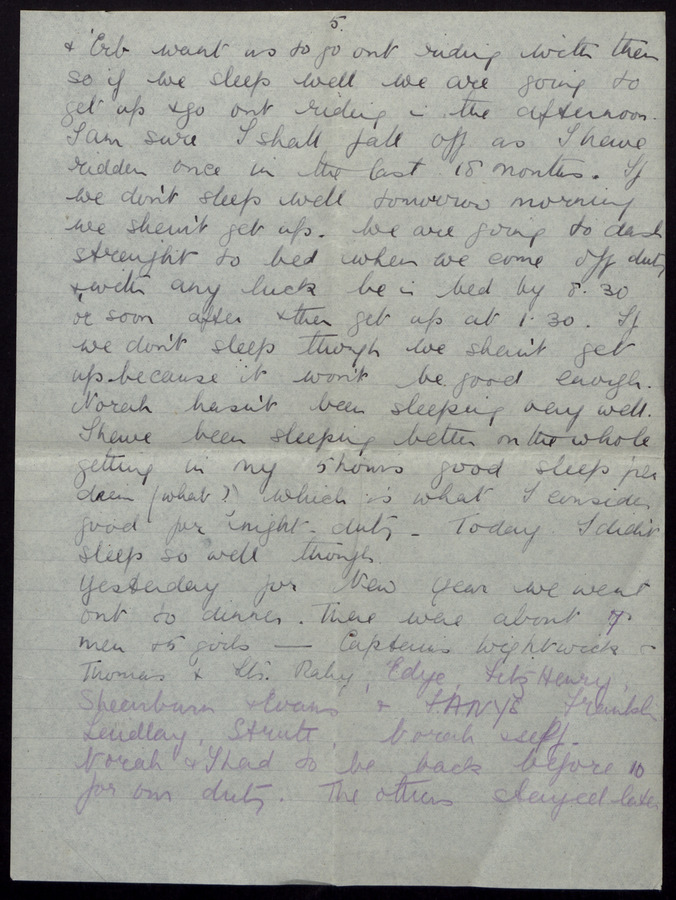 5.
& 'Erb want us to go out riding with them
so if we sleep well we are going to
get up & go out riding in the afternoon.
I am sure I shall fall off as I have
ridden once in the last 18 months. If
we don't sleep well tomorrow morning
we shan't get up. We are going to dash
straight to bed when we come off duty
& with any luck be in bed by 8.30
or soon after & then get up at 1.30. If
we don't sleep though we shan't get
up because it won't be good enough.
Norah hasn't been sleeping very well.
I have been sleeping better on the whole
getting in my 5 hours good sleep per
diem (what?) which is what I consider
good for night-duty - Today I didn't
sleep so well though.
Yesterday for New Year we went
out to dinner. There were about 7
men & 5 girls — Captains Wightwick &
Thomas & Lts. Raby, Edye, FitzHenry,
Spearburn & Evans & FANYS Franklin
Lendlay, Strutt, Norah self.
Norah & I had to be back before 10
for our duty. The others stayed later